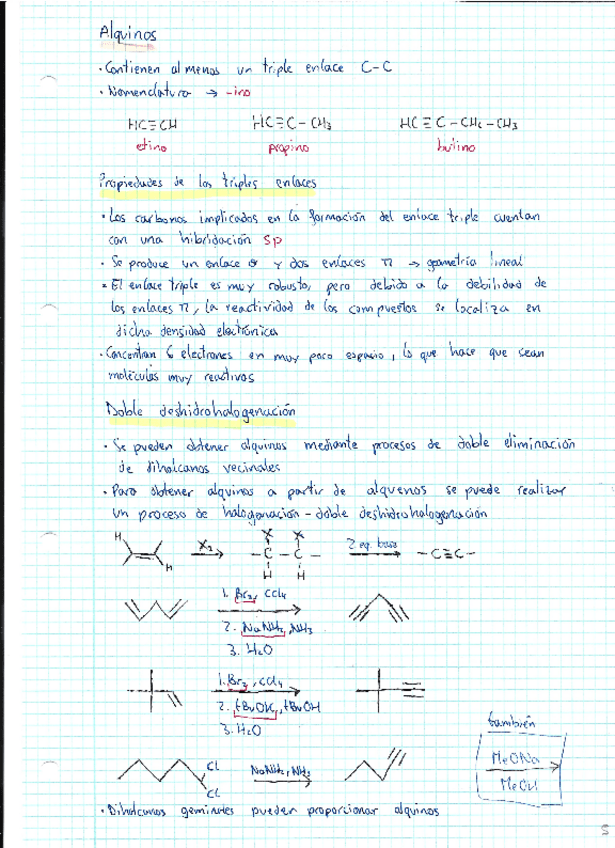 Alquinos
· Contienen al menos un triple enlace C-C
· Nomenclatura → -ino
HC≡CH HC≡C-CH₃ HC≡C-CH₂-CH₃
etino propino butino
Propiedades de los triples enlaces
· Los carbonos implicados en la formación del enlace triple cuentan
con una hibridación sp
· Se produce un enlace σ y dos enlaces π → geometría lineal
· El enlace triple es muy robusto, pero debido a la debilidad de
los enlaces π, la reactividad de los compuestos se localiza en
dicha densidad electrónica
· Concentran 6 electrones en muy poco espacio, lo que hace que sean
moléculas muy reactivas
Doble deshidrohalogenación
· Se pueden obtener alquinos mediante procesos de doble eliminación
de dihalcanos vecinales
· Para obtener alquinos a partir de alquenos se puede realizar
un proceso de halogenación - doble deshidrohalogenación
H X X
X₂ -C-C- 2 eq. base -C≡C-
H H H
1. Br₂, CCl₄
2. NaNH₂, NH₃
3. H₂O
1. Br₂, CCl₄
2. tBuOK, tBuOH
3. H₂O
también
Cl NaNH₂, NH₃ MeONa
Cl MeOH
· Dihalcanos geminales pueden proporcionar alquinos
5